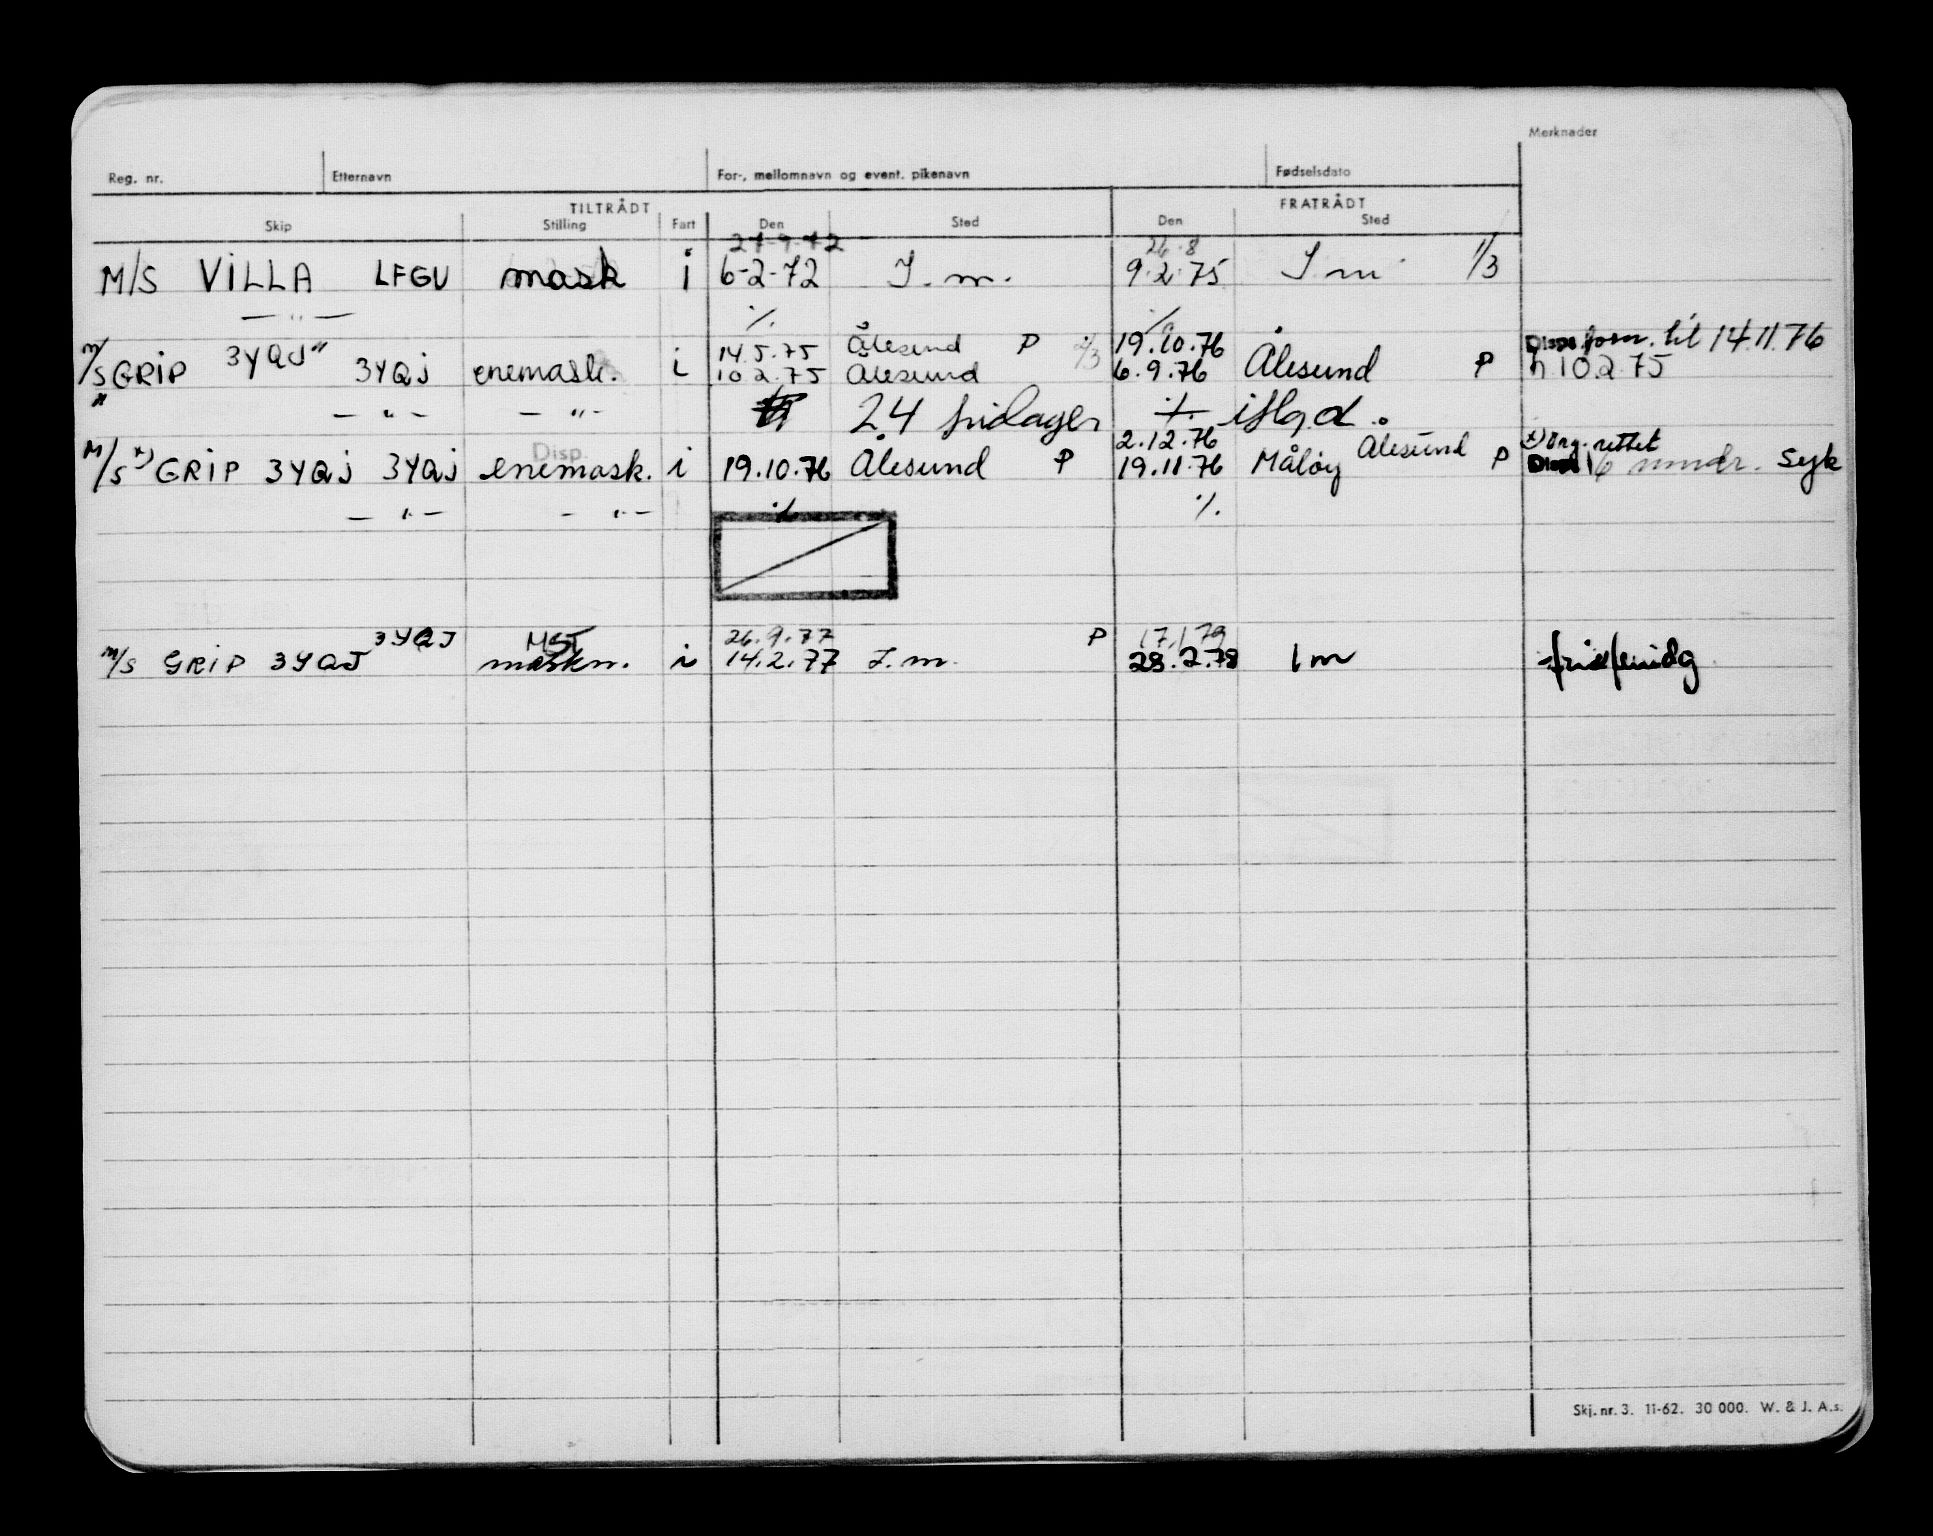 Merknader
Reg. nr. Etternavn For-, mellomnavn og event. pikenavn Fødselsdato
TILTRÅDT FRATRÅDT
Skip Stilling Fart Den Sted Den Sted
26.8
M/S VILLA LFGU mask i 6-2-72 I.m. 9.2.75 I m 1/3
— " —
14.5.75 Ålesund P 19.10.76 Disp. forn. til 14.11.76
M/S GRIP 3YQJ 3YQJ enemask. i 10 2 75 Ålesund 6.9.76 Ålesund P h 10.2.75
" — " — — " — 24 fridager iflg d.
2.12.76 Ålesund x) Org. rettet
Disp.
M/S x) GRIP 3YQJ 3YQJ enemask. i 19.10.76 Ålesund P 19.11.76 Måløy P Disp 6 mndr. Syk
— " — — " — ٪ ٪
3YQJ MST 26.9.77 P 17.1 79
M/S GRIP 3YQJ maskn. i 14.2.77 I.m. 28.2.78 I m
Skj. nr. 3. 11-62. 30 000. W. & J. A.s.